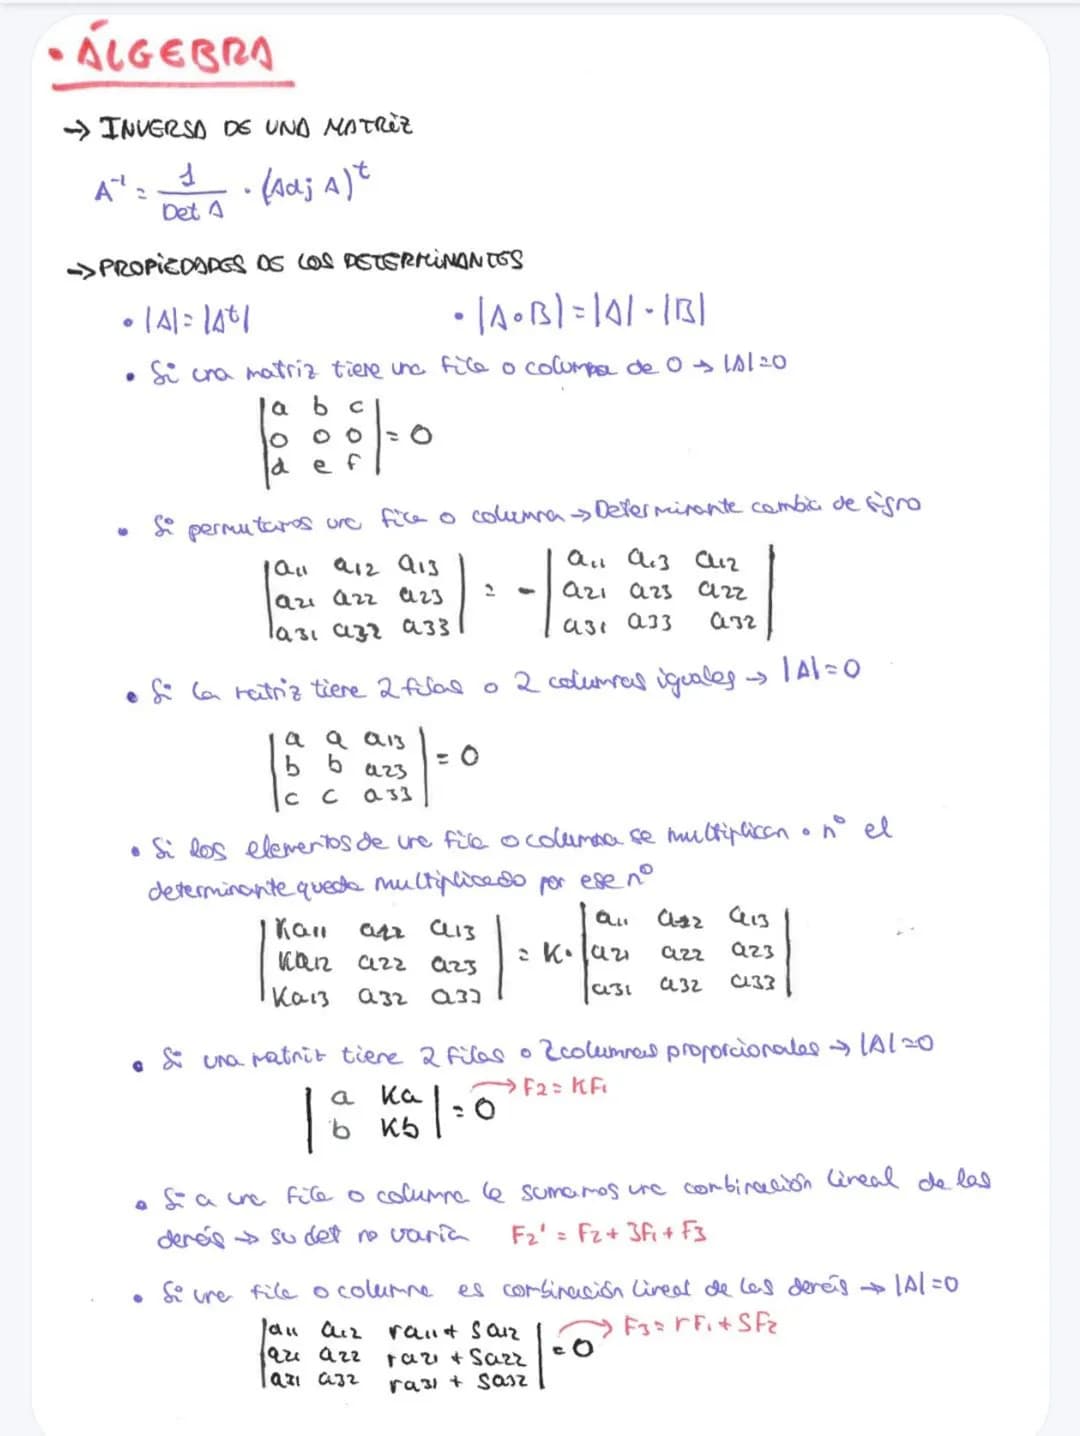 • ÁLGEBRA
→ INVERSA DE UNA MATRIZ
A⁻¹ = 1 / Det A · (Adj A)ᵗ
→ PROPIEDADES DE LOS DETERMINANTES
• |A| = |Aᵗ| • |A∘B| = |A| · |B|
• Si una matriz tiene una fila o columna de 0 → |A| = 0
|a b c|
|0 0 0| = 0
|d e f|
• Si permutamos una fila o columna → Determinante cambia de signo
|a11 a12 a13| |a11 a13 a12|
|a21 a22 a23| = - |a21 a23 a22|
|a31 a32 a33| |a31 a33 a32|
• Si la matriz tiene 2 filas o 2 columnas iguales → |A| = 0
|a a a13|
|b b a23| = 0
|c c a33|
• Si los elementos de una fila o columna se multiplican · nº el
determinante queda multiplicado por ese nº
|Ka11 a12 a13| |a11 a12 a13|
|Ka12 a22 a23| = K· |a21 a22 a23|
|Ka13 a32 a33| |a31 a32 a33|
• Si una matriz tiene 2 filas o 2 columnas proporcionales → |A| = 0
|a Ka| = 0 → F2 = KF1
|b Kb|
• Si a una fila o columna le sumamos una combinación lineal de las
demás → su det no varía F2' = F2 + 3F1 + F3
• Si una fila o columna es combinación lineal de las demás → |A| = 0
|a11 a12 ra11 + sa12| → F3 = rF1 + SF2
|a21 a22 ra21 + sa22| = 0
|a31 a32 ra31 + sa32|